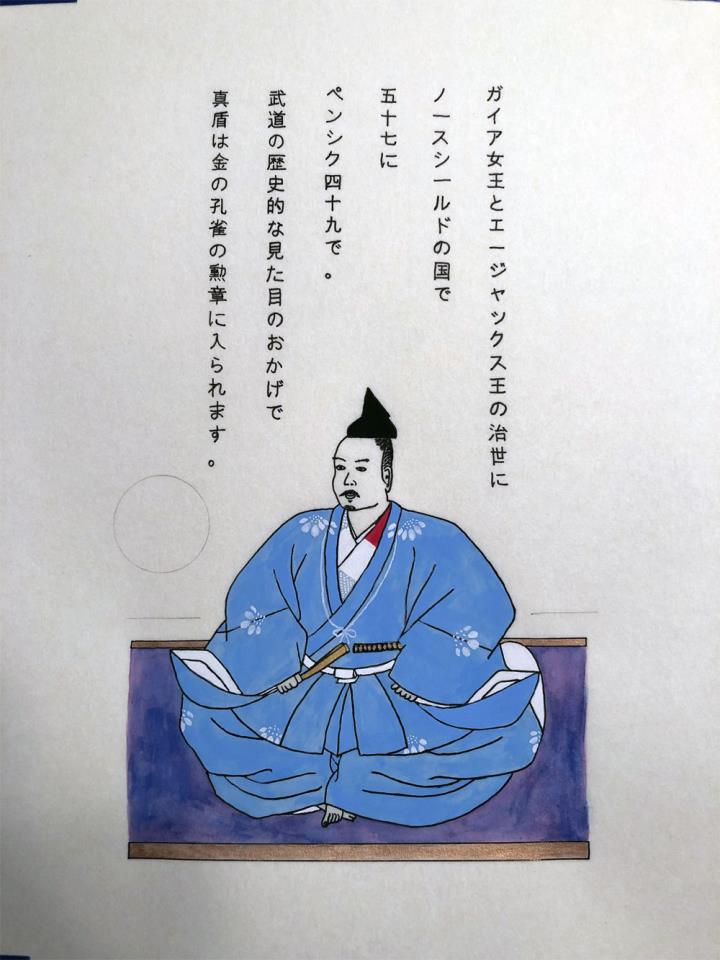 ガイア女王とエージャックス王の治世に
ノースシールドの国で
五十七に
ペンシク四十九で。
武道の歴史的な見た目のおかげで
真盾は金の孔雀の勲章に入られます。